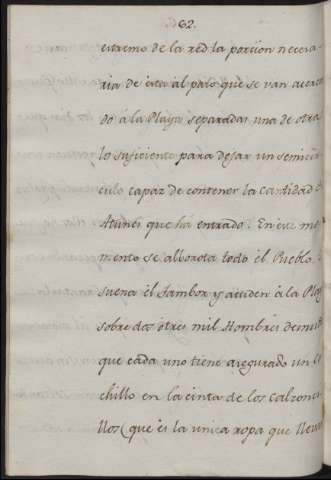 62.
estremo de la red la porcion necesa-
ria de ésta al paso que se van acercan
do a la Playa separadas una de otra
lo suficiente para dejar un semicir
culo capaz de contener la cantidad
Atunes que ha entrado. En ese mo
mento se alborota todo el Pueblo:
suena el tambor y acuden á la Play
sobre dos ó tres mil Hombres desnud
que cada uno tiene asegurado un Cu
chillo en la cinta de los calzonci
llos (que és la unica ropa que lleva